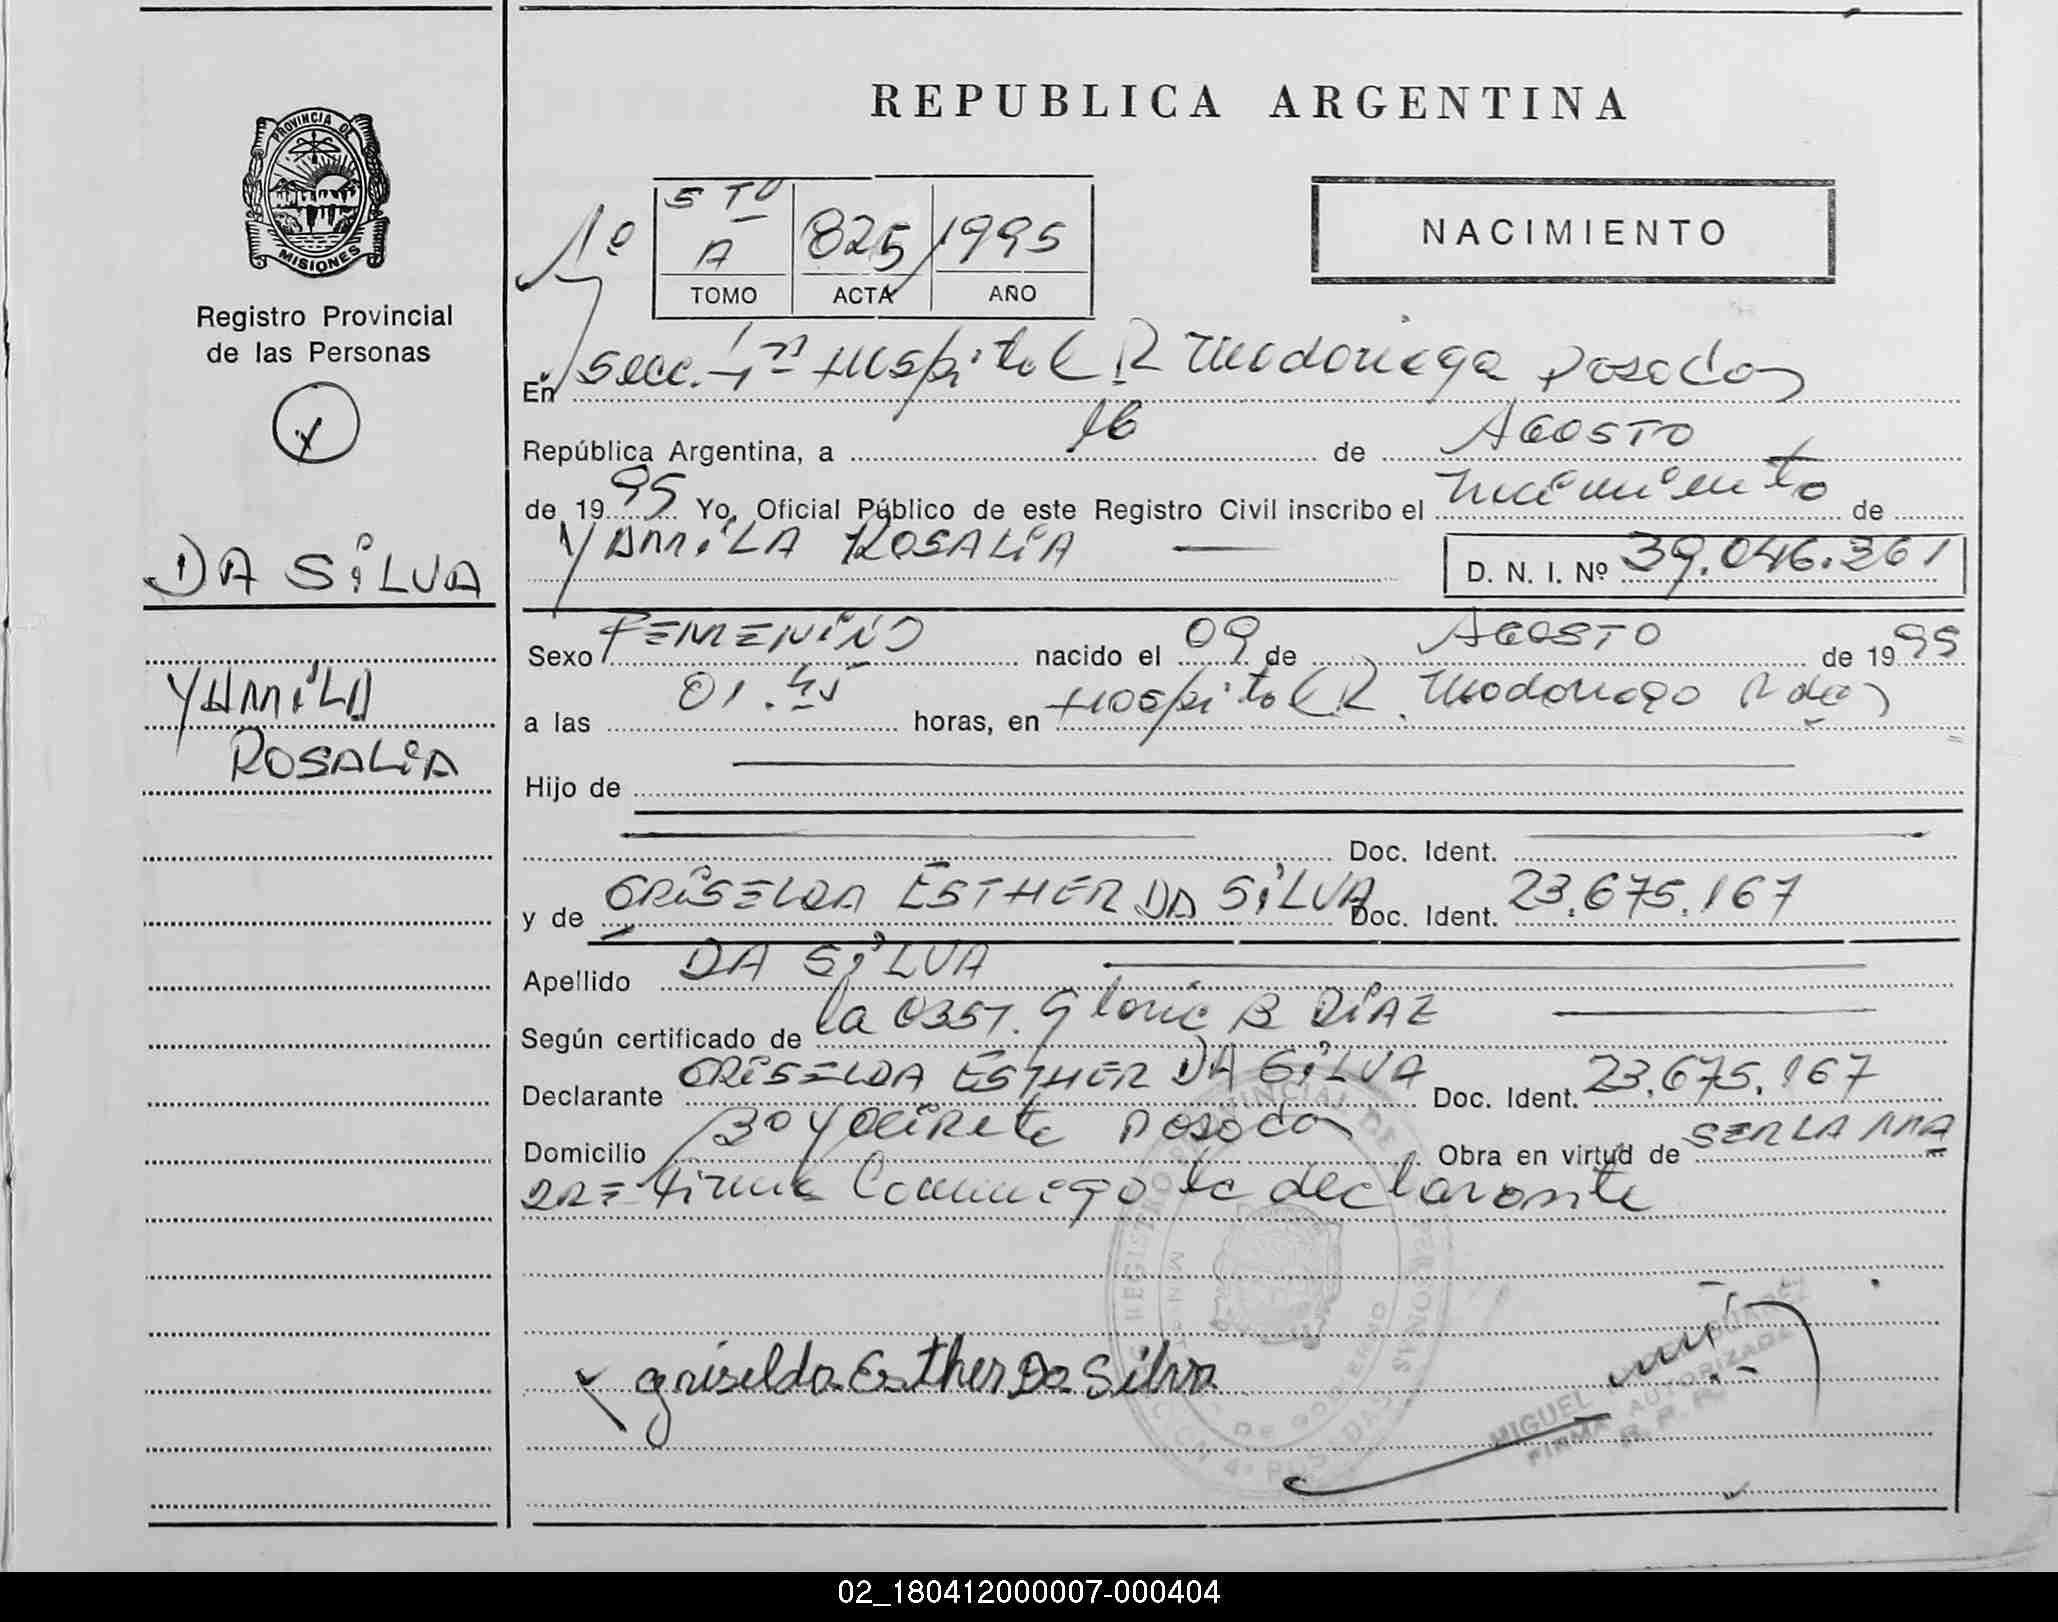 REPUBLICA ARGENTINA
PROVINCIA DE
MISIONES
Registro Provincial
de las Personas
DA SiLVA
YAMiLA
ROSALiA
5 TO
A 825 1995
TOMO ACTA AÑO
NACIMIENTO
En Secc. Hospital R Madariaga Posadas
República Argentina, a 16 de AGOSTO
de 1995 Yo, Oficial Público de este Registro Civil inscribo el Nacimiento de
YAMiLA ROSALiA D. N. I. Nº 39.046.361
Sexo FEMENiNO nacido el 09 de AGOSTO de 1995
a las 01.45 horas, en Hospital R. Madariaga Pdas
Hijo de
Doc. Ident.
y de GRiSELDA ESTHER DA SiLVA Doc. Ident. 23.675.167
Apellido DA SiLVA
Según certificado de la Obst. Gloria B DiAZ
Declarante GRiSELDA ESTHER DA SiLVA Doc. Ident. 23.675.167
Domicilio Bº YACiRETa Posadas Obra en virtud de SER LA MA
DRE firma Conmigo la declarante
REGISTRO PROVINCIAL DE LAS PERSONAS
MINISTERIO DE GOBIERNO
SECCION 4ª POSADAS
Griselda Esther Da Silva
MIGUEL
FIRMA AUTORIZADA
R. P. P.
02_180412000007-000404